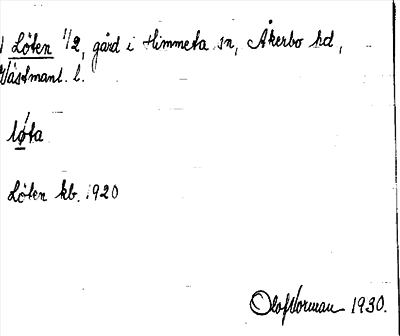 Löten 1/2, gård i Himmeta sn, Åkerbo hd,
Västmanl. l.
løta
Löten kb. 1920
Olof Norman 1930.